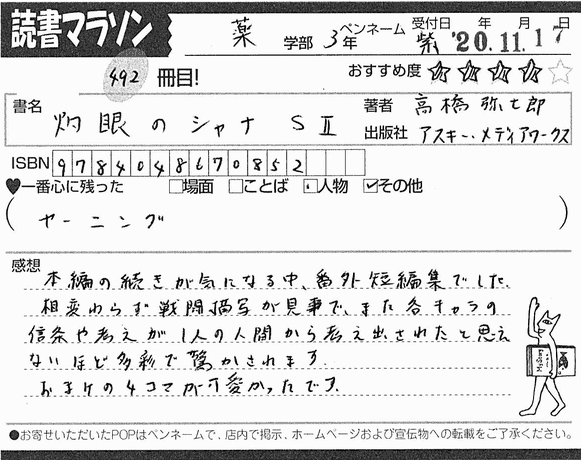 読書マラソン
薬 学部 3年
ペンネーム 紫
受付日 '20年 11月 17日
492 冊目!
おすすめ度 ★★★★☆
書名 灼眼のシャナ SⅡ
著者 高橋弥七郎
出版社 アスキー・メディアワークス
ISBN 9784048670852
♥一番心に残った □場面 □ことば □人物 ☑その他
( ヤーニング )
感想
本編の続きが気になる中、番外短編集でした。
相変わらず戦闘描写が見事で、また各キャラの
信条や考えが1人の人間から考え出されたと思え
ないほど多彩で驚かされます。
おまけの4コマが可愛かったです。
●お寄せいただいたPOPはペンネームで、店内で掲示、ホームページおよび宣伝物への転載をご了承ください。